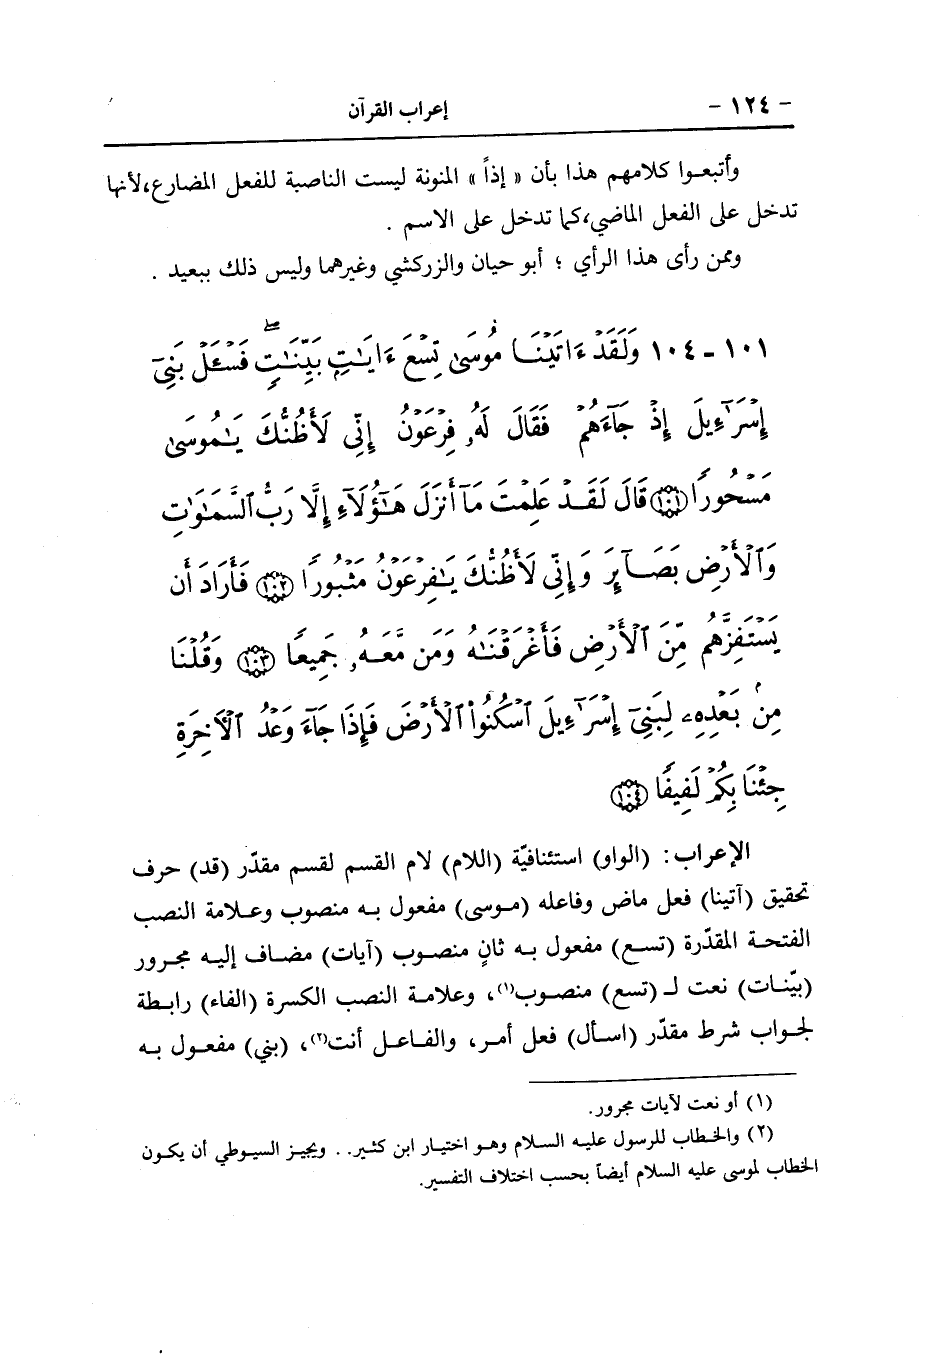 - ١٢٤ - إعراب القرآن
وأتبعـوا كلامهم هذا بأن « إذاً » المنونة ليست الناصبة للفعل المضارع،لأنها
تدخل على الفعل الماضي،كما تدخل على الاسم .
وممن رأى هذا الرأي ؛ أبو حيان والزركشي وغيرهما وليس ذلك ببعيد .
١٠١ - ١٠٤ وَلَقَدْ ءَاتَيْنَا مُوسَىٰ تِسْعَ ءَايَٰتٍۭ بَيِّنَٰتٍۖ فَسْـَٔلْ بَنِىٓ
إِسْرَٰٓءِيلَ إِذْ جَآءَهُمْ فَقَالَ لَهُۥ فِرْعَوْنُ إِنِّى لَأَظُنُّكَ يَٰمُوسَىٰ
مَسْحُورًا ﴿١٠١﴾ قَالَ لَقَدْ عَلِمْتَ مَآ أَنزَلَ هَٰٓؤُلَآءِ إِلَّا رَبُّ ٱلسَّمَٰوَٰتِ
وَٱلْأَرْضِ بَصَآئِرَ وَإِنِّى لَأَظُنُّكَ يَٰفِرْعَوْنُ مَثْبُورًا ﴿١٠٢﴾ فَأَرَادَ أَن
يَسْتَفِزَّهُم مِّنَ ٱلْأَرْضِ فَأَغْرَقْنَٰهُ وَمَن مَّعَهُۥ جَمِيعًا ﴿١٠٣﴾ وَقُلْنَا
مِنۢ بَعْدِهِۦ لِبَنِىٓ إِسْرَٰٓءِيلَ ٱسْكُنُوا۟ ٱلْأَرْضَ فَإِذَا جَآءَ وَعْدُ ٱلْءَاخِرَةِ
جِئْنَا بِكُمْ لَفِيفًا ﴿١٠٤﴾
الإعراب: (الواو) استئنافيّة (اللام) لام القسم لقسم مقدّر (قد) حرف
تحقيق (آتينا) فعل ماض وفاعله (مـوسى) مفعول به منصوب وعـلامة النصب
الفتحـة المقدّرة (تسـع) مفعول بـه ثانٍ منصـوب (آيات) مضـاف إليـه مجـرور
(بيّنـات) نعت لـ (تسع) منصـوب(١)، وعلامـة النصب الكسرة (الفاء) رابـطة
لجواب شرط مقدّر (اسـأل) فعل أمـر، والفـاعـل أنت(٢)، (بني) مفعـول بـه
(١) أو نعت لآيات مجرور.
(٢) والخطاب للرسول عليـه السـلام وهـو اختيـار ابن كثيـر. . ويجيـز السيـوطي أن يكـون
الخطاب لموسى عليه السلام أيضاً بحسب اختلاف التفسير.